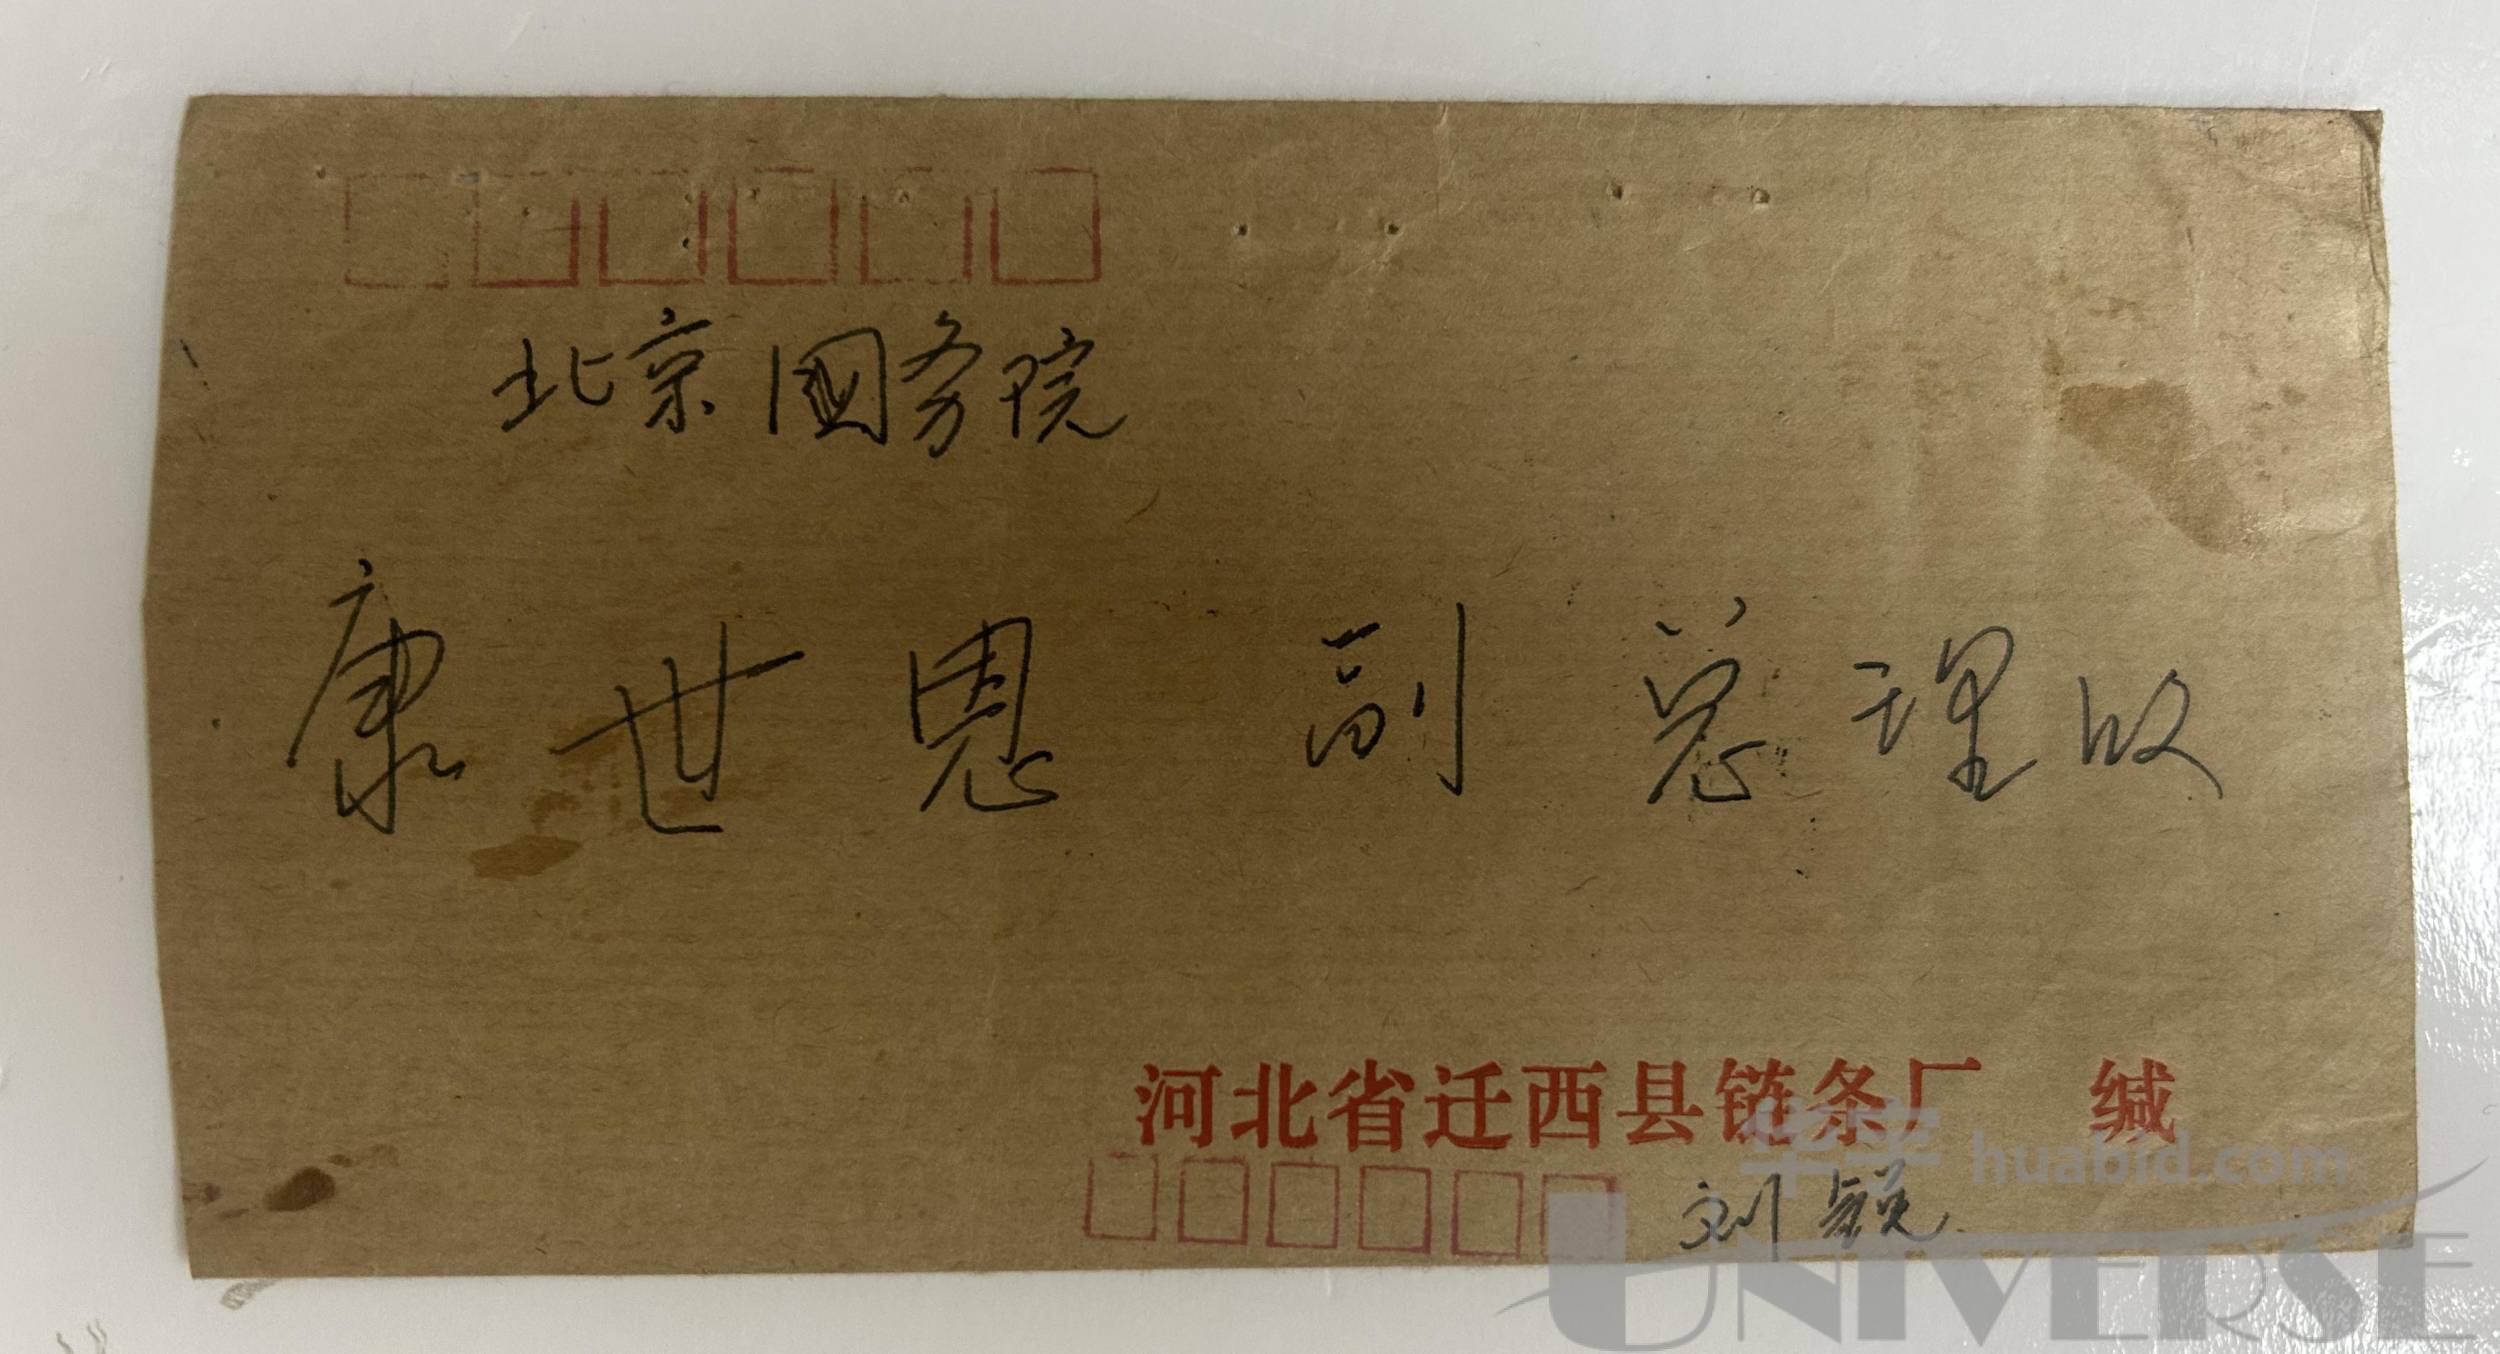 北京国务院
康世恩 副总理收
河北省迁西县链条厂 缄
刘
华宇 huabid.com
UNIVERSE